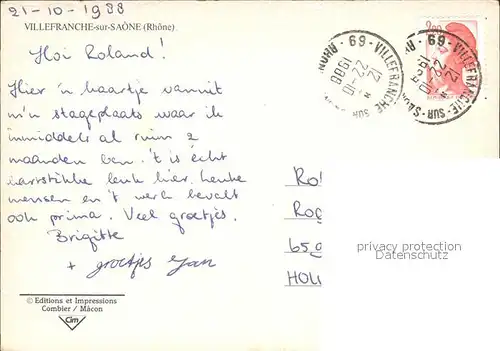 21-10-1988
VILLEFRANCHE-sur-SAÔNE (Rhône)
Hoi Roland!
Hier 'n kaartje vanuit
m'n stageplaats waar ik
inmiddels al ruim 2
maanden ben. 't is écht
hartstikke leuk hier. Leuke
mensen en 't werk bevalt
ook prima. Veel groetjes.
Brigitte
+ groetjes Jan
© Editions et Impressions
Combier / Mâcon
Cim
69 - VILLEFRANCHE - SUR
12 H
22-10
1988
RHONE
69 - VILLEFRANCHE - SUR - SAÔNE
12 H
22-10
Ro
Rog
65
HOL
privacy protection
Datenschutz